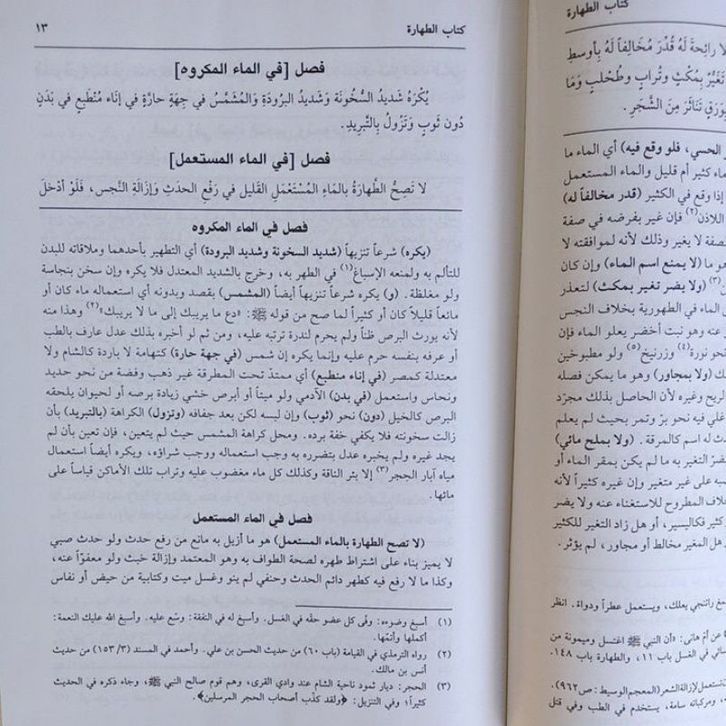 كتاب الطهارة ١٣
فصل [في الماء المكروه]
يُكْرَهُ شَدِيدُ السُّخُونَةِ وَشَدِيدُ البرُودَةِ وَالْمُشَمَّسُ فِي جِهَةٍ حارَّةٍ فِي إنَاء مُنْطَبِعٍ فِي بَدَنٍ
دُون ثَوبٍ وَتَزُولُ بِالتَّبْرِيدِ.
فصل [في الماء المستعمل]
لا تَصِحُّ الطَّهارَةُ بالمَاءِ المُسْتَعْمَلِ القَلِيلِ في رَفْعِ الحدَثِ وَإزَالَةِ النَّجَسِ، فَلَوْ أدْخَلَ
فصل في الماء المكروه
(يكره) شرعاً تنزيهاً (شديد السخونة وشديد البرودة) أي التطهير بأحدهما وملاقاته للبدن
للتألم به ولمنعه الإسباغ(١) في الطهر به، وخرج بالشديد المعتدل فلا يكره وإن سخن بنجاسة
ولو مغلظة. (و) يكره شرعاً تنزيهاً أيضاً (المشمس) بقصد وبدونه أي استعماله ماء كان أو
مائعاً قليلاً كان أو كثيراً لما صح من قوله ﷺ: «دع ما يريبك إلى ما لا يريبك»(٢) وهذا منه
لأنه يورث البرص ظناً ولم يحرم لندرة ترتبه عليه، ومن ثم لو أخبره بذلك عدل عارف بالطب
أو عرفه بنفسه حرم عليه وإنما يكره إن شمس (في جهة حارة) كتهامة لا باردة كالشام ولا
معتدلة كمصر (في إناء منطبع) أي ممتد تحت المطرقة غير ذهب وفضة من نحو حديد
ونحاس واستعمل (في بدن) الآدمي ولو ميتاً أو أبرص خشي زيادة برصه أو لحيوان يلحقه
البرص كالخيل (دون) نحو (ثوب) وإن لبسه لكن بعد جفافه (وتزول) الكراهة (بالتبريد) بأن
زالت سخونته فلا يكفي خفة برده. ومحل كراهة المشمس حيث لم يتعين، فإن تعين بأن لم
يجد غيره ولم يخبره عدل بتضرره به وجب استعماله ووجب شراؤه، ويكره أيضاً استعمال
مياه آبار الحجر(٣) إلا بئر الناقة وكذلك كل ماء مغضوب عليه وتراب تلك الأماكن قياساً على
مائها.
فصل في الماء المستعمل
(لا تصح الطهارة بالماء المستعمل) هو ما أزيل به مانع من رفع حدث ولو حدث صبي
لا يميز بناء على اشتراط طهره لصحة الطواف به وهو المعتمد وإزالة خبث ولو معفوّاً عنه،
وكذا ما لا رفع فيه كطهر دائم الحدث وحنفي لم ينو وغسل ميت وكتابية من حيض أو نفاس
(١) أسبغ وضوءه: وفى كل عضو حقه في الغسل. وأسبغ له في النفقة: وسّع عليه. وأسبغ الله عليك النعمة:
أكملها وأتمّها.
(٢) رواه الترمذي في القيامة (باب ٦٠) من حديث الحسن بن علي. وأحمد في المسند (٣/١٥٣) من حديث
أنس بن مالك.
(٣) الحجر: ديار ثمود ناحية الشام عند وادي القرى، وهم قوم صالح النبي ﷺ، وجاء ذكره في الحديث
كثيراً؛ وفي التنزيل: ﴿ولقد كذّب أصحاب الحجر المرسلين﴾.
كتاب الطهارة
لا رائحةَ لَهُ قُدِّرَ مُخَالِفاً لَهُ بِأوسطِ
تَغَيُّرٌ بِمكْثٍ وتُرابٍ وطُحْلبٍ وَمَا
بِورَقٍ تَنَاثَرَ مِنَ الشَّجَرِ.
الحسي، فلو وقع فيه) أي الماء ما
ماء كثير أم قليل والماء المستعمل
إذا وقع في الكثير (قدر مخالفاً له)
اللاذن(٢) فإن غير بفرضه في صفة
صفة لا يغير وذلك لأنه لموافقته لا
هو ما (لا يمنع اسم الماء) وإن كان
(٣) (ولا يضر تغير بمكث) لتعذر
الماء في الطهورية بخلاف النجس
عنه وهو نبت أخضر يعلو الماء فإن
نحو نورة(٤) وزرنيخ(٥) ولو مطبوخين
(ولا بمجاور) وهو ما يمكن فصله
الريح وغيره لأن الحاصل بذلك مجرّد
علي فيه نحو برّ وتمر بحيث لم يعلم
حدث له اسم كالمرقة. (ولا بملح مائي)
يضرّ التغير به ما لم يكن بمقر الماء أو
صبه على متغير وإن غيره كثيراً لأنه
خلاف المطروح للاستغناء عنه ولا يضر
كثير فكاليسير، أو هل زاد التغير للكثير
هل المغير مخالط أو مجاور، لم يؤثر.
صمغ راتنجي يعلك، ويستعمل عطراً ودواة. انظر
عن أم هانئ: «أن النبي ﷺ اغتسل وميمونة من
النسائي في الغسل باب ١١، والطهارة باب ١٤٨.
تستعمل لإزالة الشعر (المعجم الوسيط: ص ٩٦٢).
ومركباته سامة، يستخدم في الطب وفي قتل